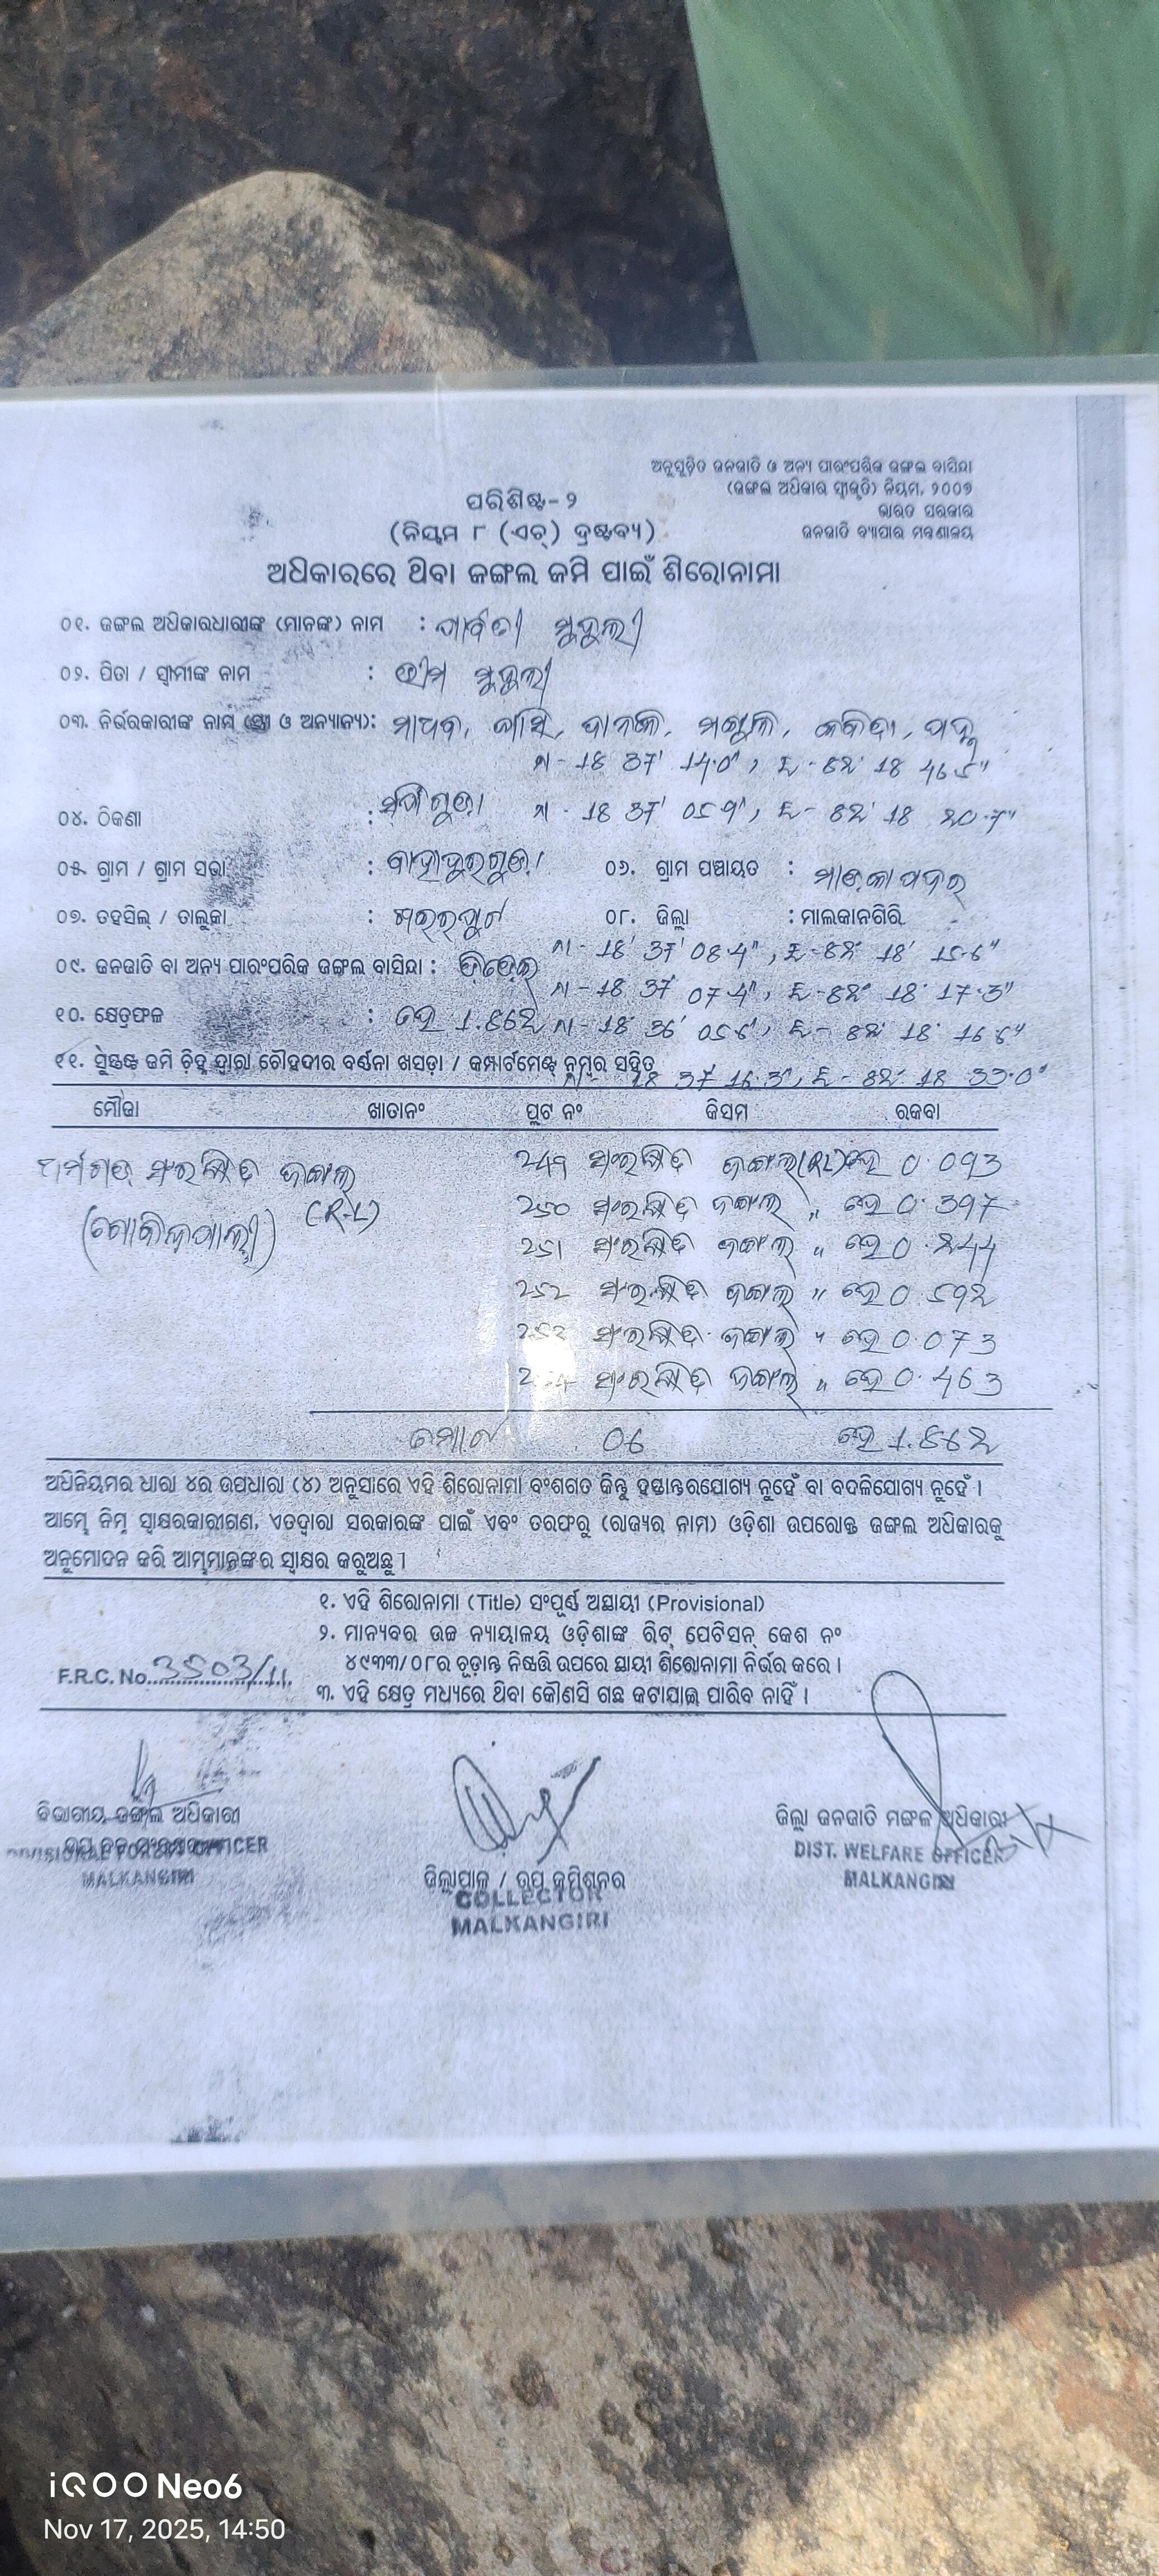 ଅନୁସୂଚିତ ଜନଜାତି ଓ ଅନ୍ୟ ପାରଂପରିକ ଜଙ୍ଗଲ ବାସିନ୍ଦା
(ଜଙ୍ଗଲ ଅଧିକାର ସ୍ୱୀକୃତି) ନିୟମ, ୨୦୦୭
ଭାରତ ସରକାର
ଜନଜାତି ବ୍ୟାପାର ମନ୍ତ୍ରଣାଳୟ
ପରିଶିଷ୍ଟ-୨
(ନିୟମ ୮ (ଏଚ୍) ଦ୍ରଷ୍ଟବ୍ୟ)
ଅଧିକାରରେ ଥିବା ଜଙ୍ଗଲ ଜମି ପାଇଁ ଶିରୋନାମା
୦୧. ଜଙ୍ଗଲ ଅଧିକାରଧାରୀଙ୍କ (ମାନଙ୍କ) ନାମ : ପାର୍ବତୀ ମୁଦୁଲୀ
୦୨. ପିତା / ସ୍ୱାମୀଙ୍କ ନାମ : ଭୀମ ମୁଦୁଲୀ
୦୩. ନିର୍ଭରକାରୀଙ୍କ ନାମ (ସ୍ତ୍ରୀ ଓ ଅନ୍ୟାନ୍ୟ): ମାଧବ,
N - 18 37' 14.0", E - 82° 18 46.5"
୦୪. ଠିକଣା : N - 18 37' 05.9", E - 82° 18 20.7"
୦୫. ଗ୍ରାମ / ଗ୍ରାମ ସଭା : ବାହାଦୁରଗୁଡ଼ା ୦୬. ଗ୍ରାମ ପଞ୍ଚାୟତ :
୦୭. ତହସିଲ୍ / ତାଲୁକା : ଖଇରପୁଟ ୦୮. ଜିଲ୍ଲା : ମାଲକାନଗିରି
N - 18' 37' 08.4", E - 82° 18' 15.6"
୦୯. ଜନଜାତି ବା ଅନ୍ୟ ପାରଂପରିକ ଜଙ୍ଗଲ ବାସିନ୍ଦା :
N - 18 37 07.4", E - 82° 18' 17.3"
୧୦. କ୍ଷେତ୍ରଫଳ : ହେ 1.862 N - 18° 36' 05.6", E - 82° 18' 16.6"
୧୧. ସୁସ୍ପଷ୍ଟ ଜମି ଚିହ୍ନ ଦ୍ୱାରା ଚୌହଦୀର ବର୍ଣନା ଖସଡ଼ା / କମ୍ପାର୍ଟମେଣ୍ଟ ନମ୍ବର ସହିତ
18 37 16.3", E - 82° 18 33.0"
ମୌଜା ଖାତାନଂ ପ୍ଲଟ ନଂ କିସମ ରକବା
ସଂରକ୍ଷିତ ଜଙ୍ଗଲ 249 ସଂରକ୍ଷିତ ଜଙ୍ଗଲ (RL) ହେ 0.093
(R-L) 250 ସଂରକ୍ଷିତ ଜଙ୍ଗଲ " ହେ 0.397
251 ସଂରକ୍ଷିତ ଜଙ୍ଗଲ " ହେ 0.244
252 ସଂରକ୍ଷିତ ଜଙ୍ଗଲ " ହେ 0.592
253 ସଂରକ୍ଷିତ ଜଙ୍ଗଲ " ହେ 0.073
ସଂରକ୍ଷିତ ଜଙ୍ଗଲ " ହେ 0.463
ମୋଟ 06 ହେ 1.862
ଅଧିନିୟମର ଧାରା ୪ର ଉପଧାରା (୪) ଅନୁସାରେ ଏହି ଶିରୋନାମା ବଂଶଗତ କିନ୍ତୁ ହସ୍ତାନ୍ତରଯୋଗ୍ୟ ନୁହେଁ ବା ବଦଳିଯୋଗ୍ୟ ନୁହେଁ ।
ଆମ୍ଭେ ନିମ୍ନ ସ୍ୱାକ୍ଷରକାରୀଗଣ, ଏତଦ୍ୱାରା ସରକାରଙ୍କ ପାଇଁ ଏବଂ ତରଫରୁ (ରାଜ୍ୟର ନାମ) ଓଡ଼ିଶା ଉପରୋକ୍ତ ଜଙ୍ଗଲ ଅଧିକାରକୁ
ଅନୁମୋଦନ କରି ଆମ୍ଭମାନଙ୍କର ସ୍ୱାକ୍ଷର କରୁଅଛୁ ।
୧. ଏହି ଶିରୋନାମା (Title) ସଂପୂର୍ଣ୍ଣ ଅସ୍ଥାୟୀ (Provisional)
୨. ମାନ୍ୟବର ଉଚ୍ଚ ନ୍ୟାୟାଳୟ ଓଡ଼ିଶାଙ୍କ ରିଟ୍ ପେଟିସନ୍ କେଶ ନଂ
୪୯୩୩/୦୮ର ଚୂଡ଼ାନ୍ତ ନିଷ୍ପତ୍ତି ଉପରେ ସ୍ଥାୟୀ ଶିରୋନାମା ନିର୍ଭର କରେ ।
F.R.C. No. 3503/11
୩. ଏହି କ୍ଷେତ୍ର ମଧ୍ୟରେ ଥିବା କୌଣସି ଗଛ କଟାଯାଇ ପାରିବ ନାହିଁ ।
ବିଭାଗୀୟ ଜଙ୍ଗଲ ଅଧିକାରୀ
DIVISIONAL FOREST OFFICER
MALKANGIRI
ଜିଲ୍ଲାପାଳ / ଉପ କମିଶନର
COLLECTOR
MALKANGIRI
ଜିଲ୍ଲା ଜନଜାତି ମଙ୍ଗଳ ଅଧିକାରୀ
DIST. WELFARE OFFICER
MALKANGIRI
iQOO Neo6
Nov 17, 2025, 14:50